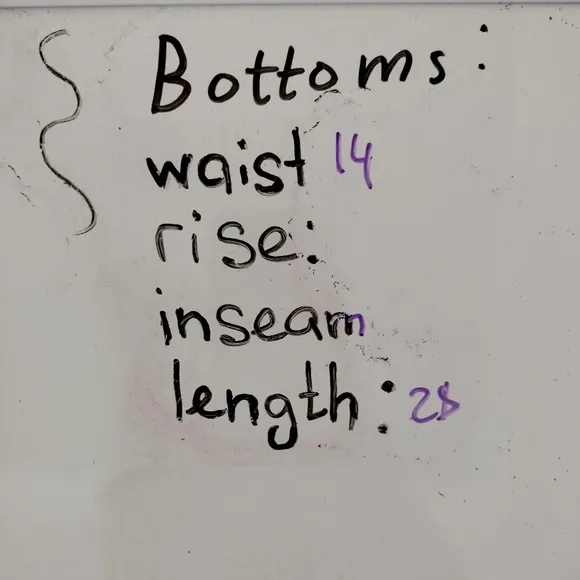 Bottoms:
waist 14
rise:
inseam
length: 28